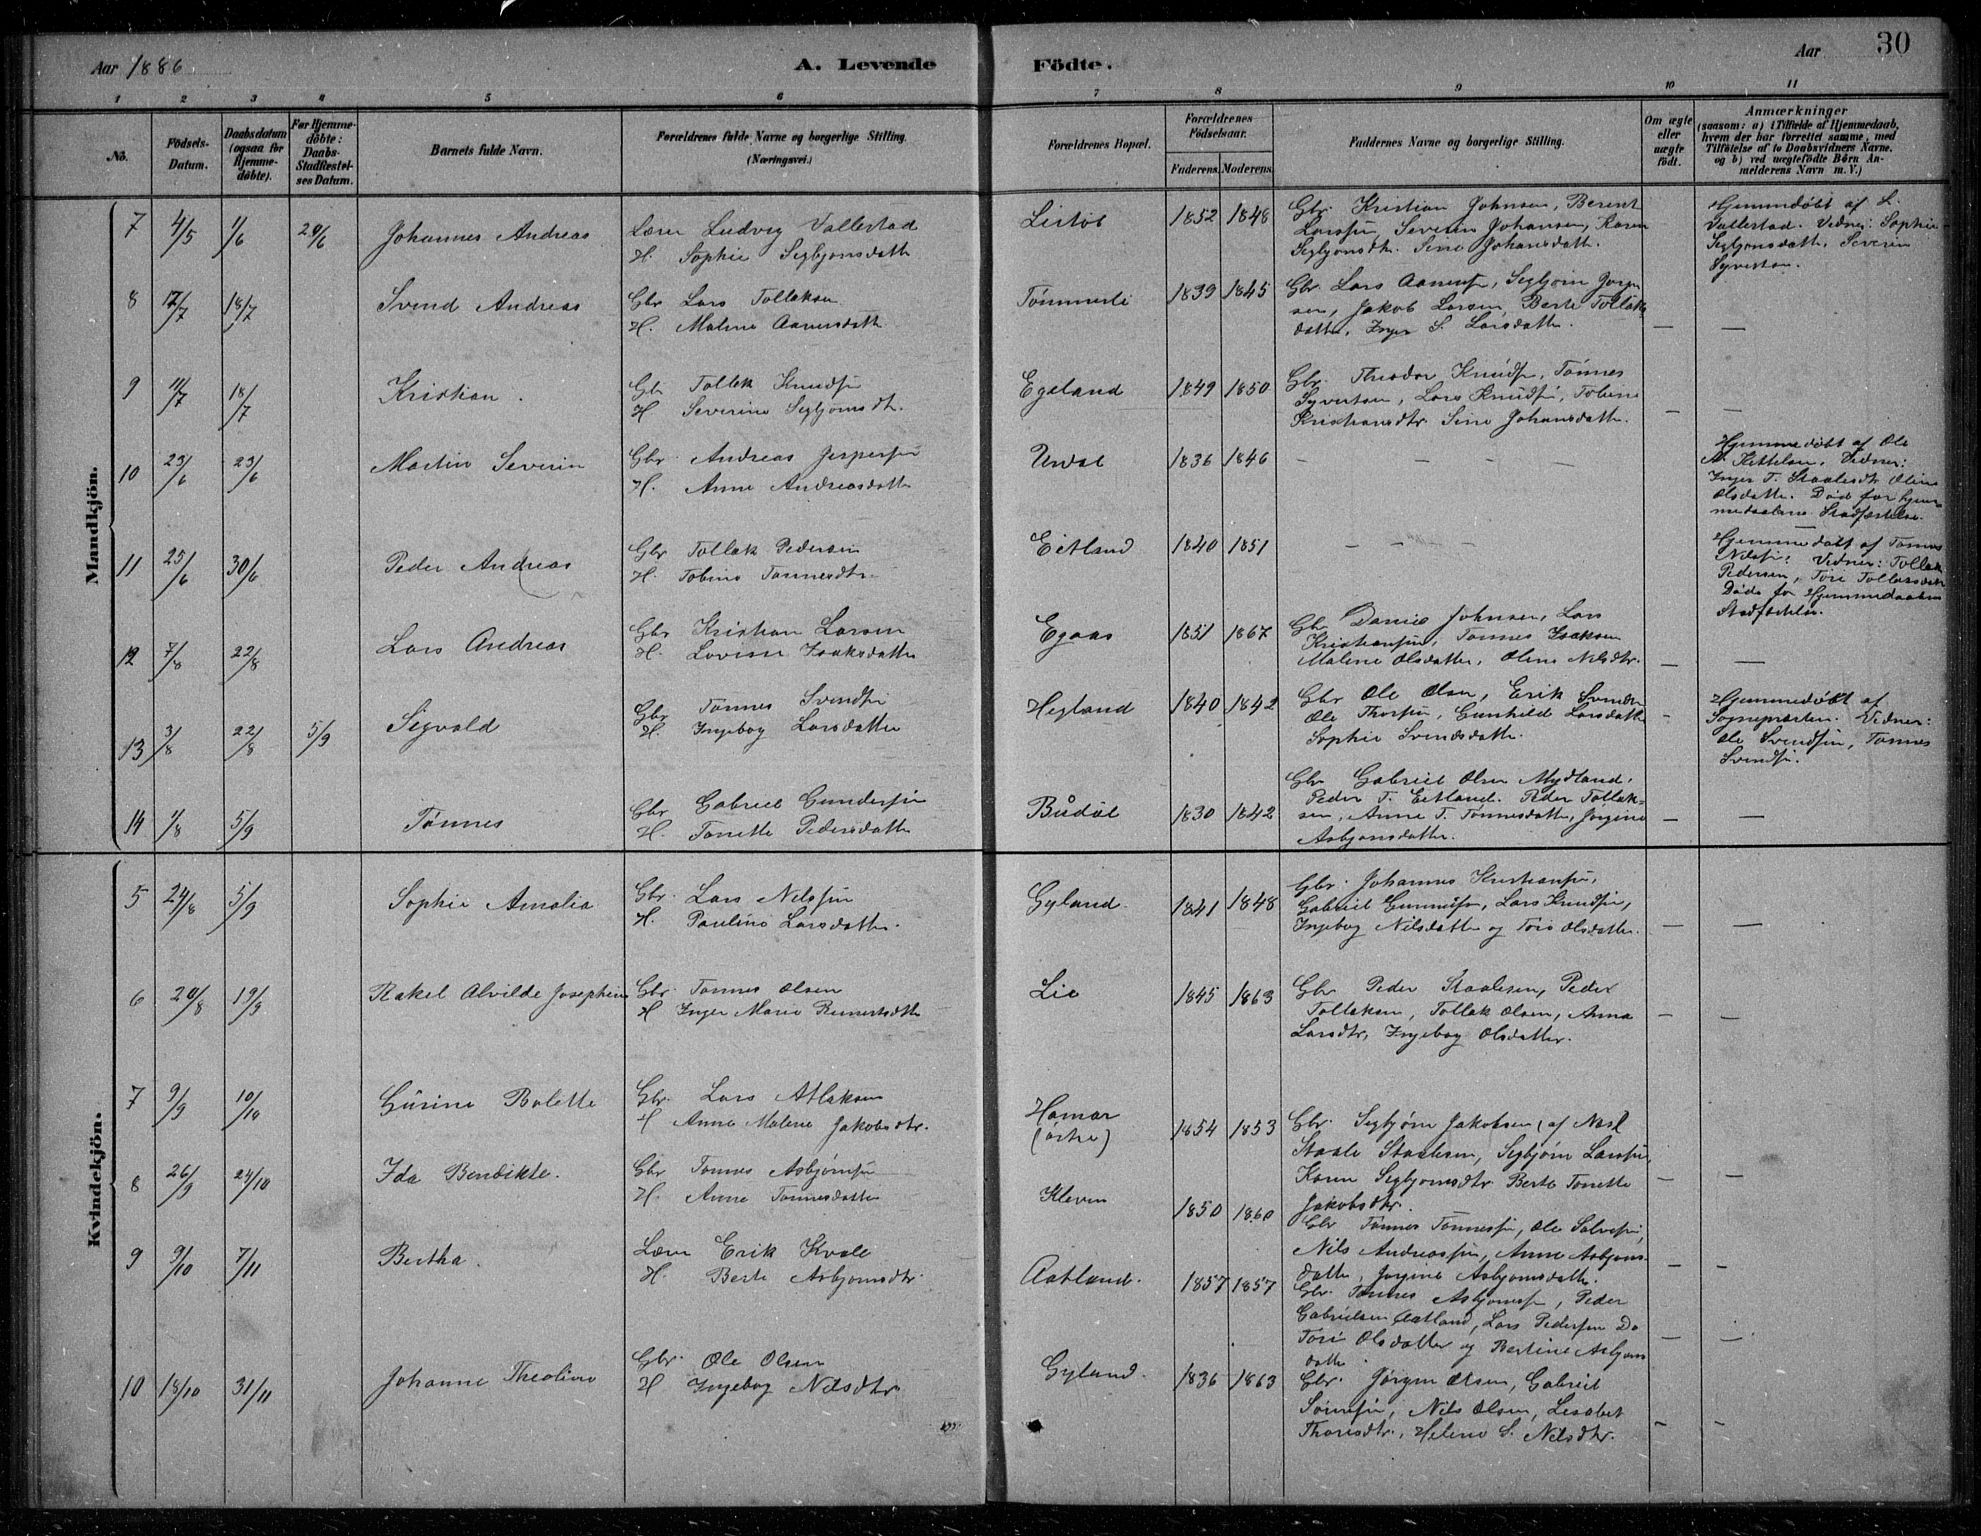 Aar 1886
A. Levende
Födte.
Aar
30
1 2 3 4 5 6 7 8 9 10 11
No.
Födsels-Datum.
Daabsdatum (ogsaa for Hjemmedöbte).
For Hjemmedöbte: Daabs-Stadfæstelses Datum.
Barnets fulde Navn.
Forældrenes fulde Navne og borgerlige Stilling. (Næringsvei.)
Forældrenes Bopæl.
Forældrenes Födselsaar.
Faderens. Moderens.
Faddernes Navne og borgerlige Stilling.
Om ægte eller uægte födt.
Anmærkninger (saasom: a) i Tilfælde af Hjemmedaab, hvem der har forrettet samme, med Tilföielse af to Daabsvidners Navne. og b) ved uægtefödte Börn Anmelderens Navn m. V.)
Mandkjön.
7 4/5 1/6 20/6 Johannes Andreas
Lærer Ludvig Vallestad
H. Sophie Segbjornsdatter
1852 1848
Gbr. Kristian Johnsen, Berent
Larssen, Severin Johansen, Karen
Segbjornsdtr. Sine Johansdatter.
Hjemmedøbt af L.
Vallestad. Vidner: Sophie
Segbjornsdatter, Severin
Syvertsen.
8 17/7 18/7 Svend Andreas
Gbr Lars Tollaksen
H. Malene Aanensdatter
Tømmerli 1839 1845
Gbr. Lars Aanensen, Segbjørn Jørgen
sen, Jakob Larsen, Berte Tollaks
datter, Inger S. Larsdatter.
— —
9 11/7 18/7 Kristian.
Gbr Tollak Knudsen
H Severine Segbjornsdtr.
Egeland 1849 1850
Gbr. Theodor Knudsen, Tønnes
Syvertsen, Lars Knudsen, Tobine
Kristiansdtr Sine Johansdatter.
— —
10 23/6 23/6 Martin Severin
Gbr. Andreas Jespersen
H. Anne Andreasdatter
Undal 1836 1846
— — — —
Hjemmedøbt af Ole
N. Kettelsen. Vidner:
Inger T. Staalesdtr Oline
Olsdatter. Død før hjem
medaabens Stadfæstelse.
11 25/6 30/6 Peder Andreas
Gbr Tollak Pedersen
H. Tobine Tønnesdtr.
Eitland 1840 1851
— — — —
Hjemmedøbt af Tønnes
Nilssen: Vidner: Tollak
Pedersen, Tore Tollaksdtr
Døde før Hjemmedaabens
Stadfæstelse.
12 7/8 22/8 Lars Andreas
Gbr Kristian Larsen
H. Lovise Isaksdatter
Egaas 1851 1867
Gbr Daniel Johnsen, Lars
Kristiansen, Tønnes Isaksen
Malene Olsdatter, Oline Nilsdtr.
— —
13 3/8 22/8 5/9 Sigvald
Gbr Tønnes Svendsen
H. Ingebog Larsdatter
Hegland 1840 1842
Gbr Ole Olsen, Erik Svendsen
Ole Thorsen, Gunhild Larsdatter
Sophie Svendsdatter.
—
Hjemmedøbt af
Sognepræsten. Vidner:
Ole Svendsen, Tønnes
Svendsen.
14 1/8 5/9 Tønnes
Gbr Gabriel Gundersen
H. Tonette Pedersdatter
Budal 1830 1842
Gbr Gabriel Olsen Mydland.
Peder T. Eitland. Peder Tollak-
sen, Anne T. Tønnesdatter, Jørgine
Asbjornsdatter.
— —
Kvindekjön.
5 24/8 5/9 Sophie Amalia
Gbr. Lars Nilssen
H. Pauline Larsdatter.
Gyland. 1841 1848
Gbr. Johannes Kristiansen,
Gabriel Gunnufsen, Lars Knudsen,
Ingebog Nilsdatter og Tore Olsdatter.
— —
6 20/8 19/9 Rakel Alvilde Josephine
Gbr. Tønnes Olsen
H Inger Marie Reinertsdtr
Lie 1845 1863
Gbr Peder Staalesen, Peder
Tollaksen, Tollak Olsen, Anna
Larsdtr, Ingebog Olsdatter.
— —
7 9/9 10/10 Gurine Bolette
Gbr. Lars Atlaksen
H Anne Malene Jakobsdtr.
Hamar
(østre) 1854 1853
Gbr. Segbjørn Jakobsen (af Nesl
Staale Staalesen, Segbjørn Larssen,
Karen Segbjornsdtr Berte Tonette
Jakobsdtr.
— —
8 26/9 24/10 Ida Bendikte.
Gbr Tønnes Asbjørnsen
H. Anne Tønnesdatter
Kleven 1850 1860
Gbr Tønnes Tønnessen, Ole Salvesen,
Nils Andreassen, Anne Asbjorns-
datter, Jørgine Asbjornsdatter.
— —
9 9/10 7/11 Bertha.
Lærer Erik Kvale
H. Berte Asbjornsdtr.
Aatland. 1857 1857
Gbr. Tønnes Asbjornsen, Peder
Gabrielsen Aatland, Lars Pedersen Do
Tore Olsdatter og Bertine Asbjorns
datter.
— —
10 18/10 31/11 Johanne Theoline
Gbr. Ole Olsen
H Ingebog Nilsdtr.
Gyland. 1836 1863
Gbr. Jørgen Olsen, Gabriel
Nils Olsen, Lisabet
Thorsdtr., Helene S. Nilsdtr.
— —